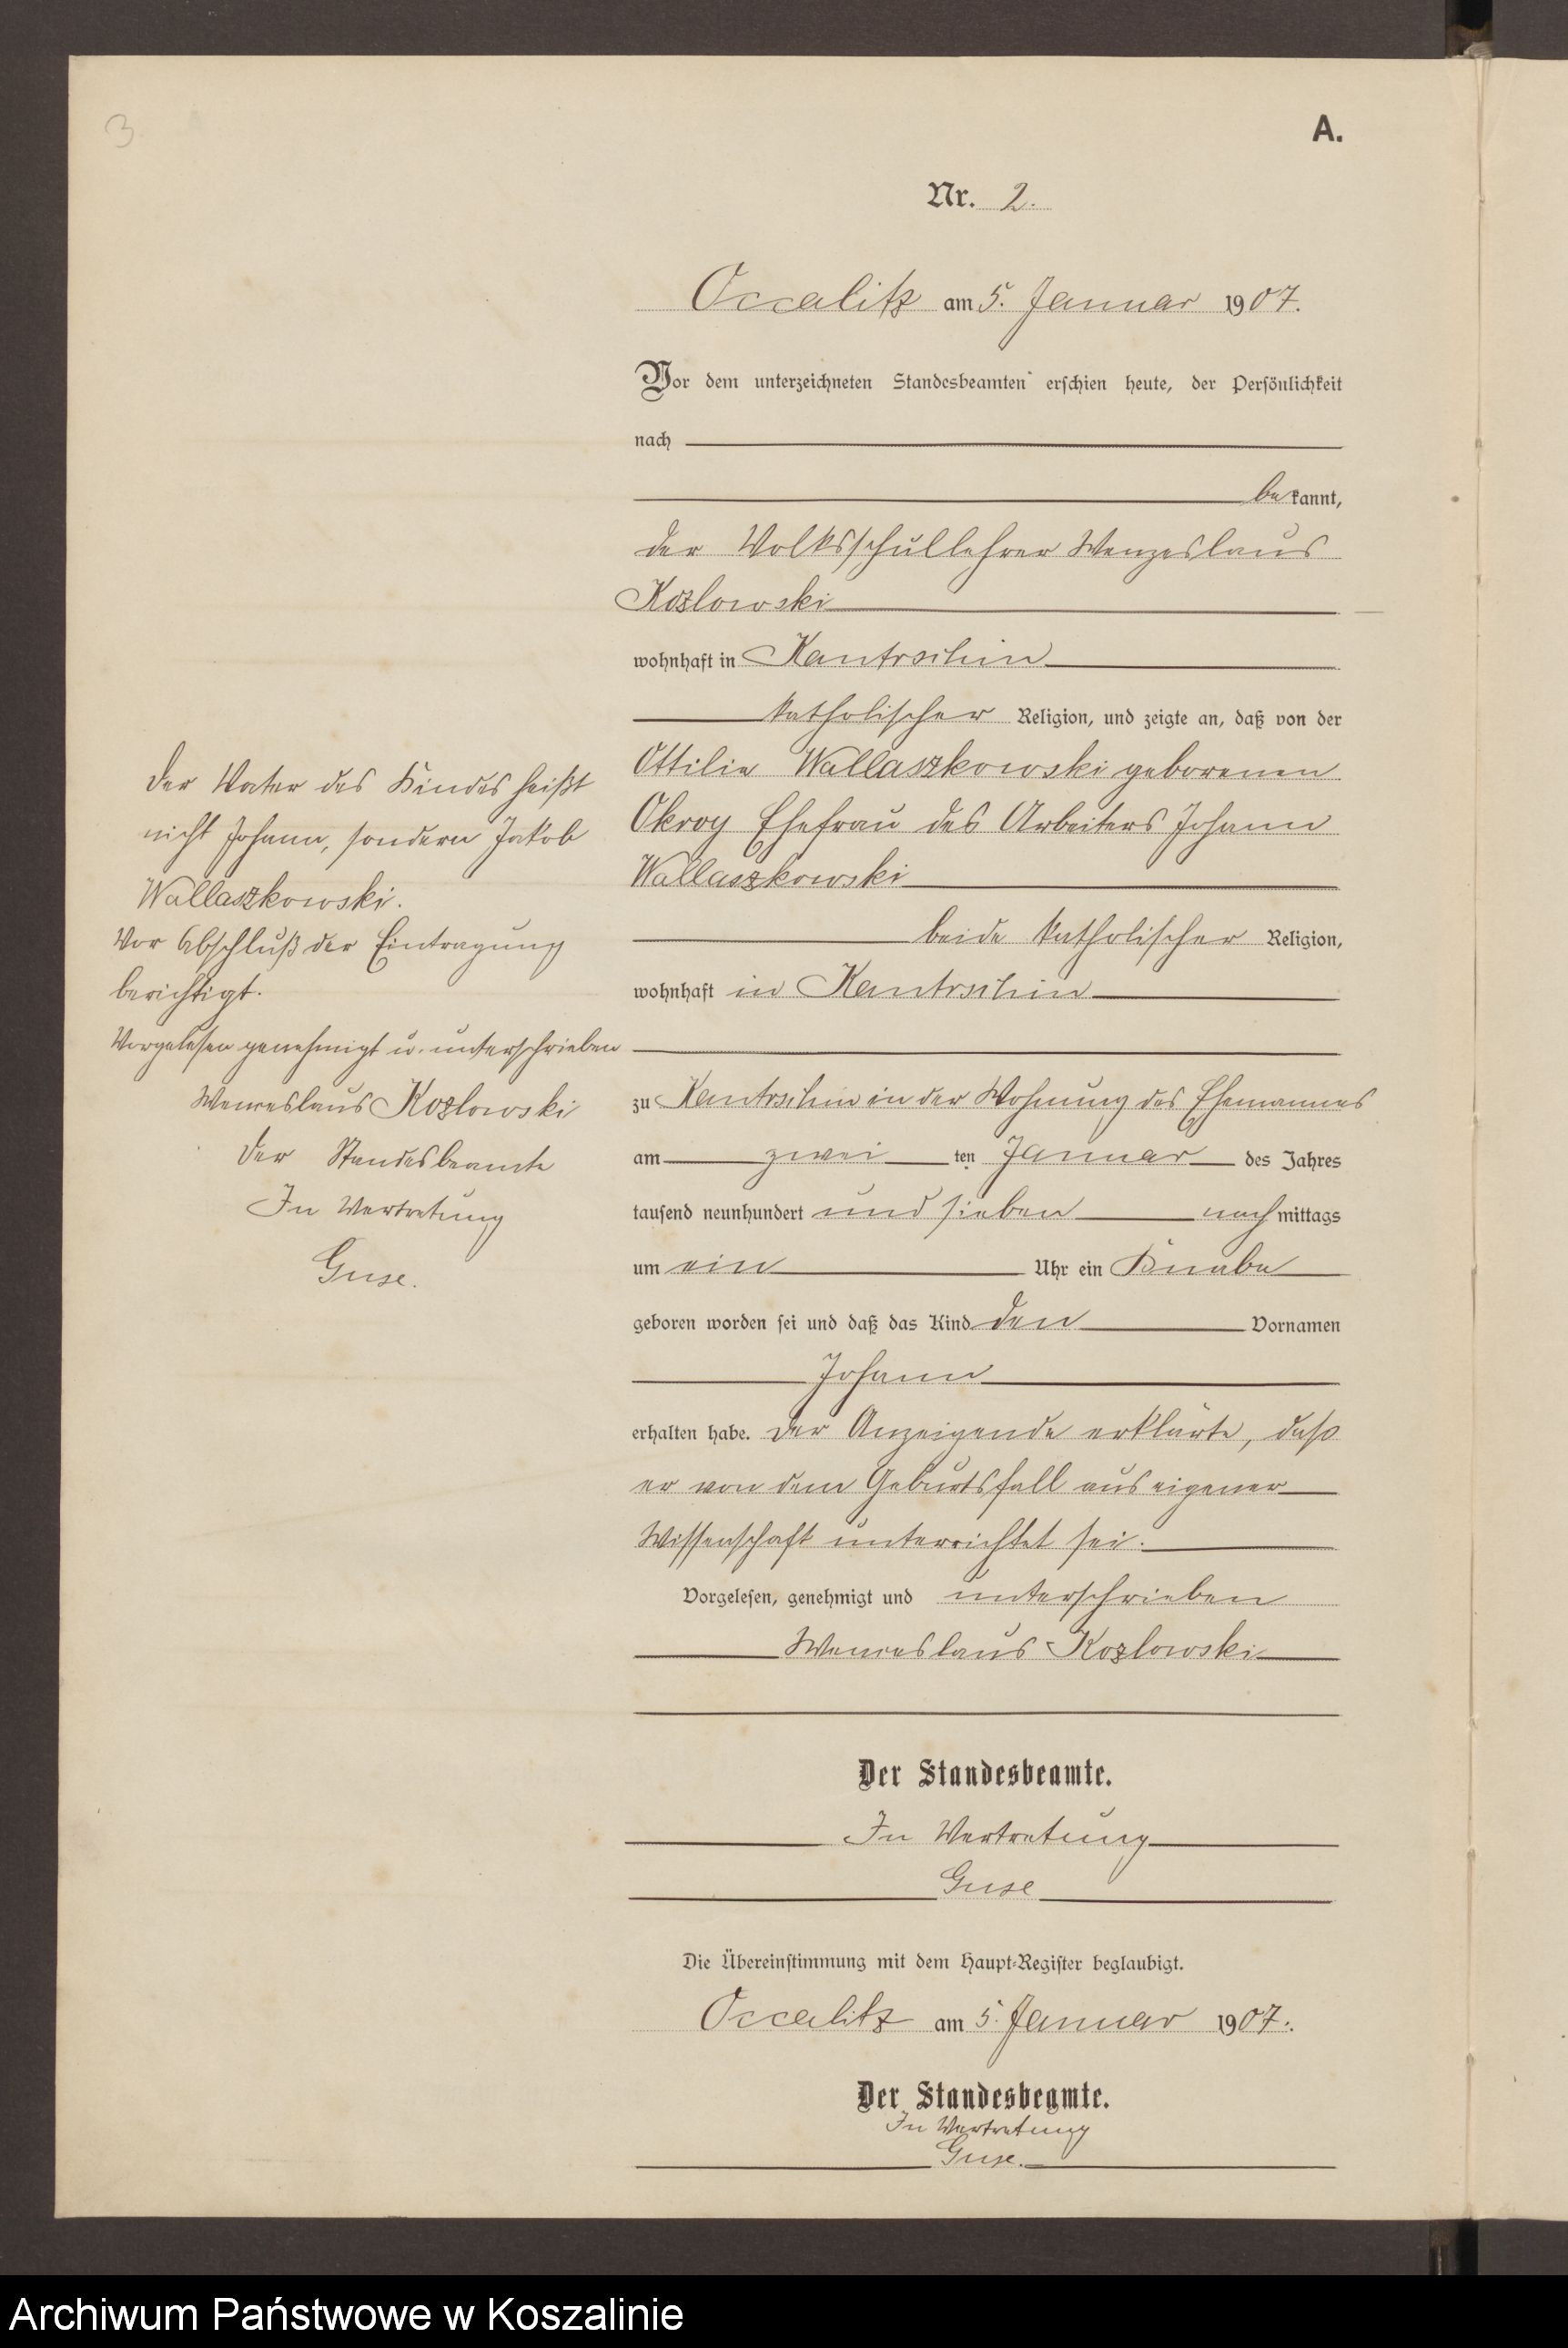 3
A.
Nr. 2.
Occalitz am 5. Januar 1907.
Vor dem unterzeichneten Standesbeamten erschien heute, der Persönlichkeit
nach
bekannt,
der Volksschullehrer Wenzeslaus
Kozlowski
wohnhaft in Kantrschin
katholischer Religion, und zeigte an, daß von der
Ottilie Wallaszkowski geborenen
Okroy Ehefrau des Arbeiters Johann
Wallaszkowski
beide katholischer Religion,
wohnhaft in Kantrschin
zu Kantrschin in der Wohnung des Ehemannes
am zwei ten Januar des Jahres
tausend neunhundert und sieben nachmittags
um ein Uhr ein Knabe
geboren worden sei und daß das Kind den Vornamen
Johann
erhalten habe. Der Anzeigende erklärte, daß
er von dem Geburtsfall aus eigener
Wissenschaft unterrichtet sei.
Vorgelesen, genehmigt und unterschrieben
Wenceslaus Kozlowski
Der Standesbeamte.
In Vertretung
Guse
Die Übereinstimmung mit dem Haupt-Register beglaubigt.
Occalitz am 5. Januar 1907.
Der Standesbeamte.
In Vertretung
Guse.
Der Vater des Kindes heißt
nicht Johann, sondern Jakob
Wallaszkowski.
Vor Abschluß der Eintragung
berichtigt.
Vorgelesen genehmigt u. unterschrieben
Wenceslaus Kozlowski
Der Standesbeamte
In Vertretung
Guse.
Archiwum Państwowe w Koszalinie